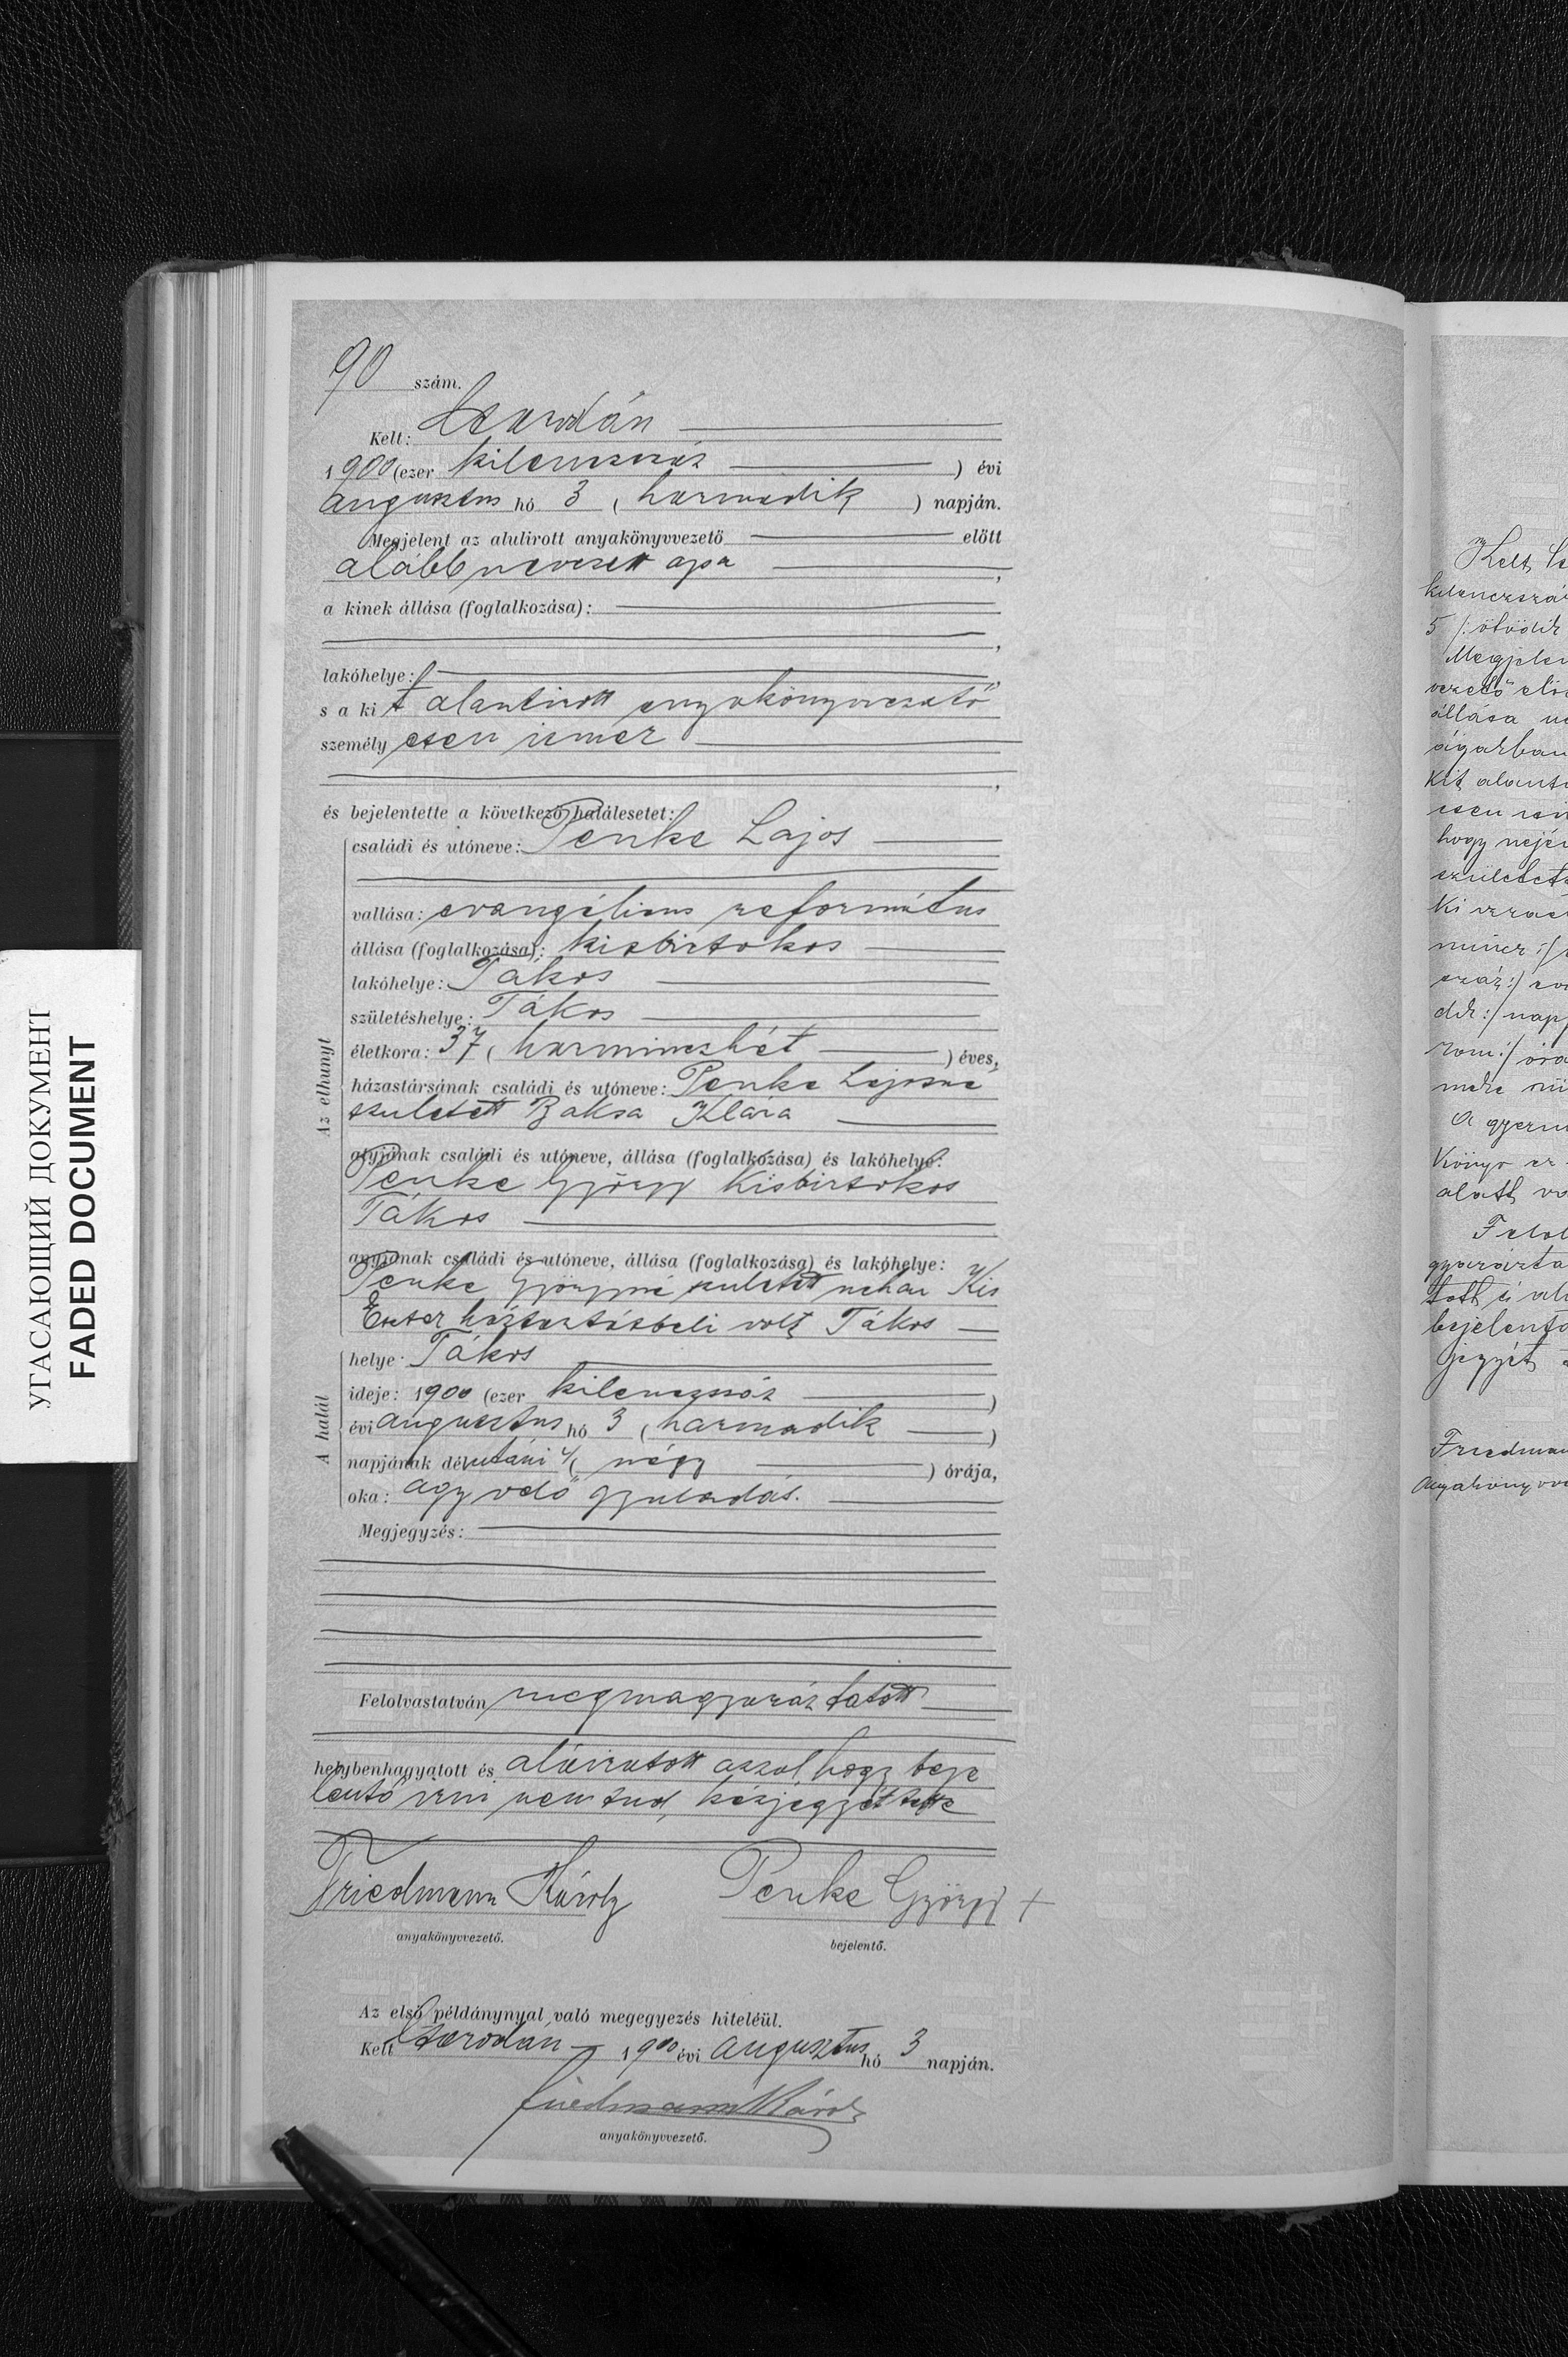 90 szám.
Kelt: Csarodán
1900 (ezer kilenczszáz ) évi
augusztus hó 3 ( harmadik ) napján.
Megjelent az alulirott anyakönyvvezető előtt
alább nevezett apa ,
a kinek állása (foglalkozása):
,
lakóhelye: ,
s a kit alantirott anyakönyvvezető
személyesen ismer
,
és bejelentette a következő halálesetet:
Az elhunyt
családi és utóneve: Penke Lajos
vallása: evangélicus református
állása (foglalkozása): kisbirtokos
lakóhelye: Tákos
születéshelye: Tákos
életkora: 37 ( harminczhét ) éves,
házastársának családi és utóneve: Penke Lajosné
született Baksa Klára
atyjának családi és utóneve, állása (foglalkozása) és lakóhelye:
Penke György kisbirtokos
Tákos
anyjának családi és utóneve, állása (foglalkozása) és lakóhelye:
Penke Györgyné született néhai Kis
Eszter háztartásbeli volt Tákos
A halál
helye: Tákos
ideje: 1900 (ezer kilenczszáz )
évi augusztus hó 3 ( harmadik )
napjának délutáni 4 ( négy ) órája,
oka: agyvelő gyuladás.
Megjegyzés:
Felolvastatván megmagyaráztatott
helybenhagyatott és aláiratott azzal, hogy beje
lentő irni nem tud, kézjegyét tette
Friedmann Károly Penke György +
anyakönyvvezető. bejelentő.
Az első példánynyal való megegyezés hiteléül.
Kelt Csarodán 1900 évi augusztus hó 3 napján.
Friedmann Károly
anyakönyvvezető.
УГАСАЮЩИЙ ДОКУМЕНТ
FADED DOCUMENT
Kelt
kilenczszáz
5 /: ötödik
Megjelen
vezető elő
állása
kit alant
hogy nejé
született
száz :/
dik :/ nap
A gyerm
könyv
alatt
Felol
bejelentő
jegyét
Friedman
anyakönyvve